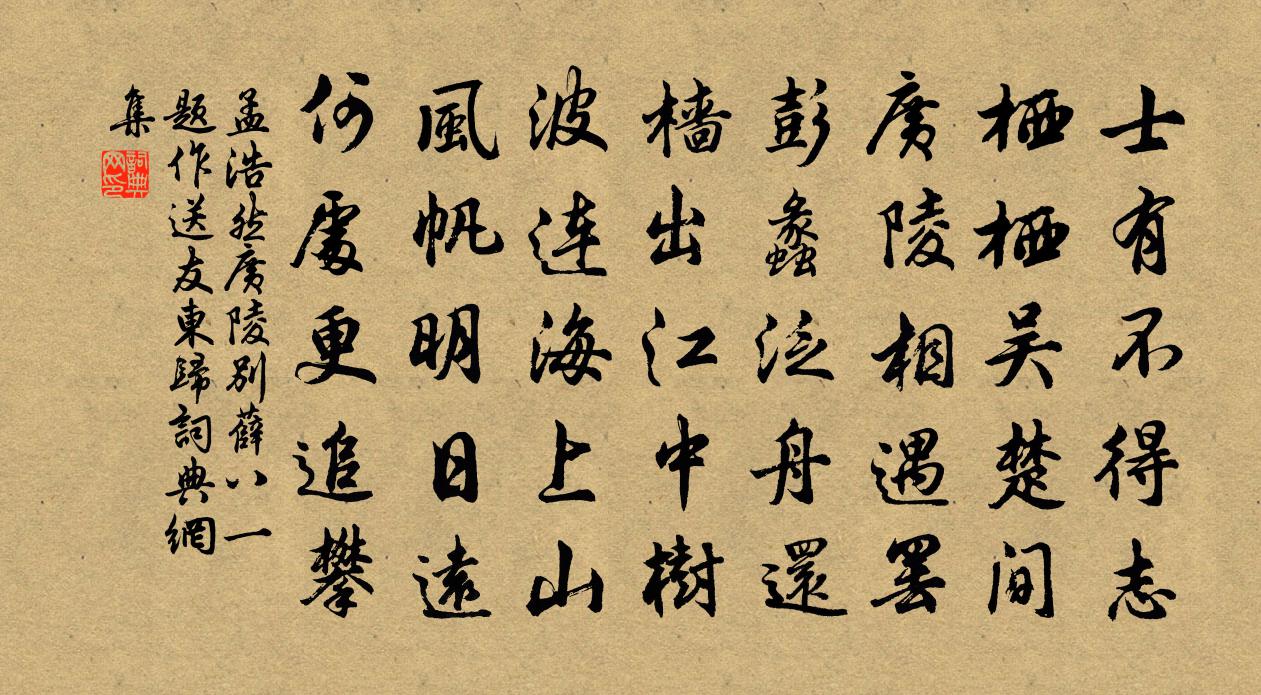 士有不得志
栖栖吴楚間
廣陵相遇罢
彭蠡泛舟還
樯出江中樹
波连海上山
風帆明日遠
何處更追攀
孟浩然廣陵別薛八一
题作送友東歸詞典網
集
詞典
网印